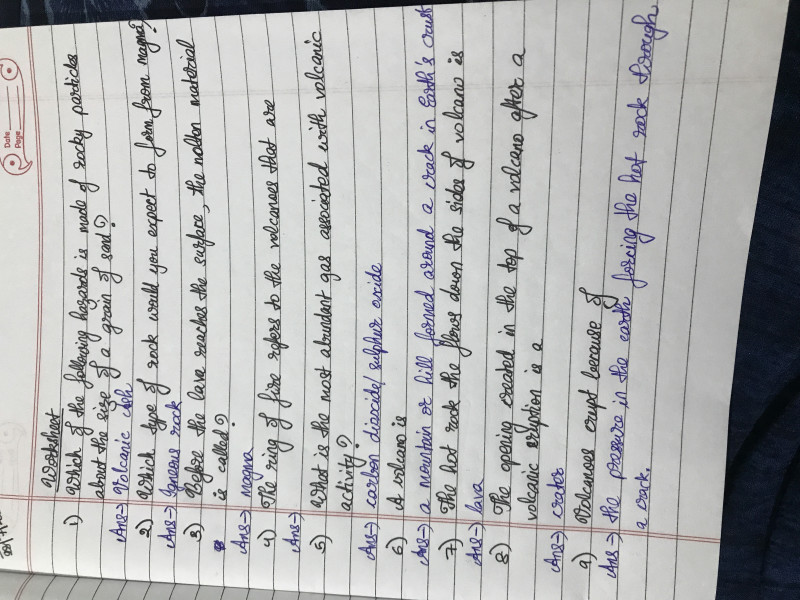 Date
Page
Worksheet
1) Which of the following hazards is made of rocky particles
about the size of a grain of sand?
Ans→ Volcanic ash
2) Which type of rock would you expect to form from magma?
Ans→ Igneous rock
3) Before the lava reaches the surface, the molten material
is called?
Ans→ magma
4) The ring of fire refers to the volcanoes that are
Ans→
5) What is the most abundant gas associated with volcanic
activity?
Ans→ carbon dioxide/sulphur oxide
6) A volcano is
Ans→ a mountain or hill formed around a crack in Earth's crust
7) The hot rock the flows down the sides of volcano is
Ans→ lava
8) The opening created in the top of a volcano after a
volcanic eruption is a
Ans→ crater
9) Volcanoes erupt because of
Ans→ the pressure in the earth forcing the hot rock through
a crack.